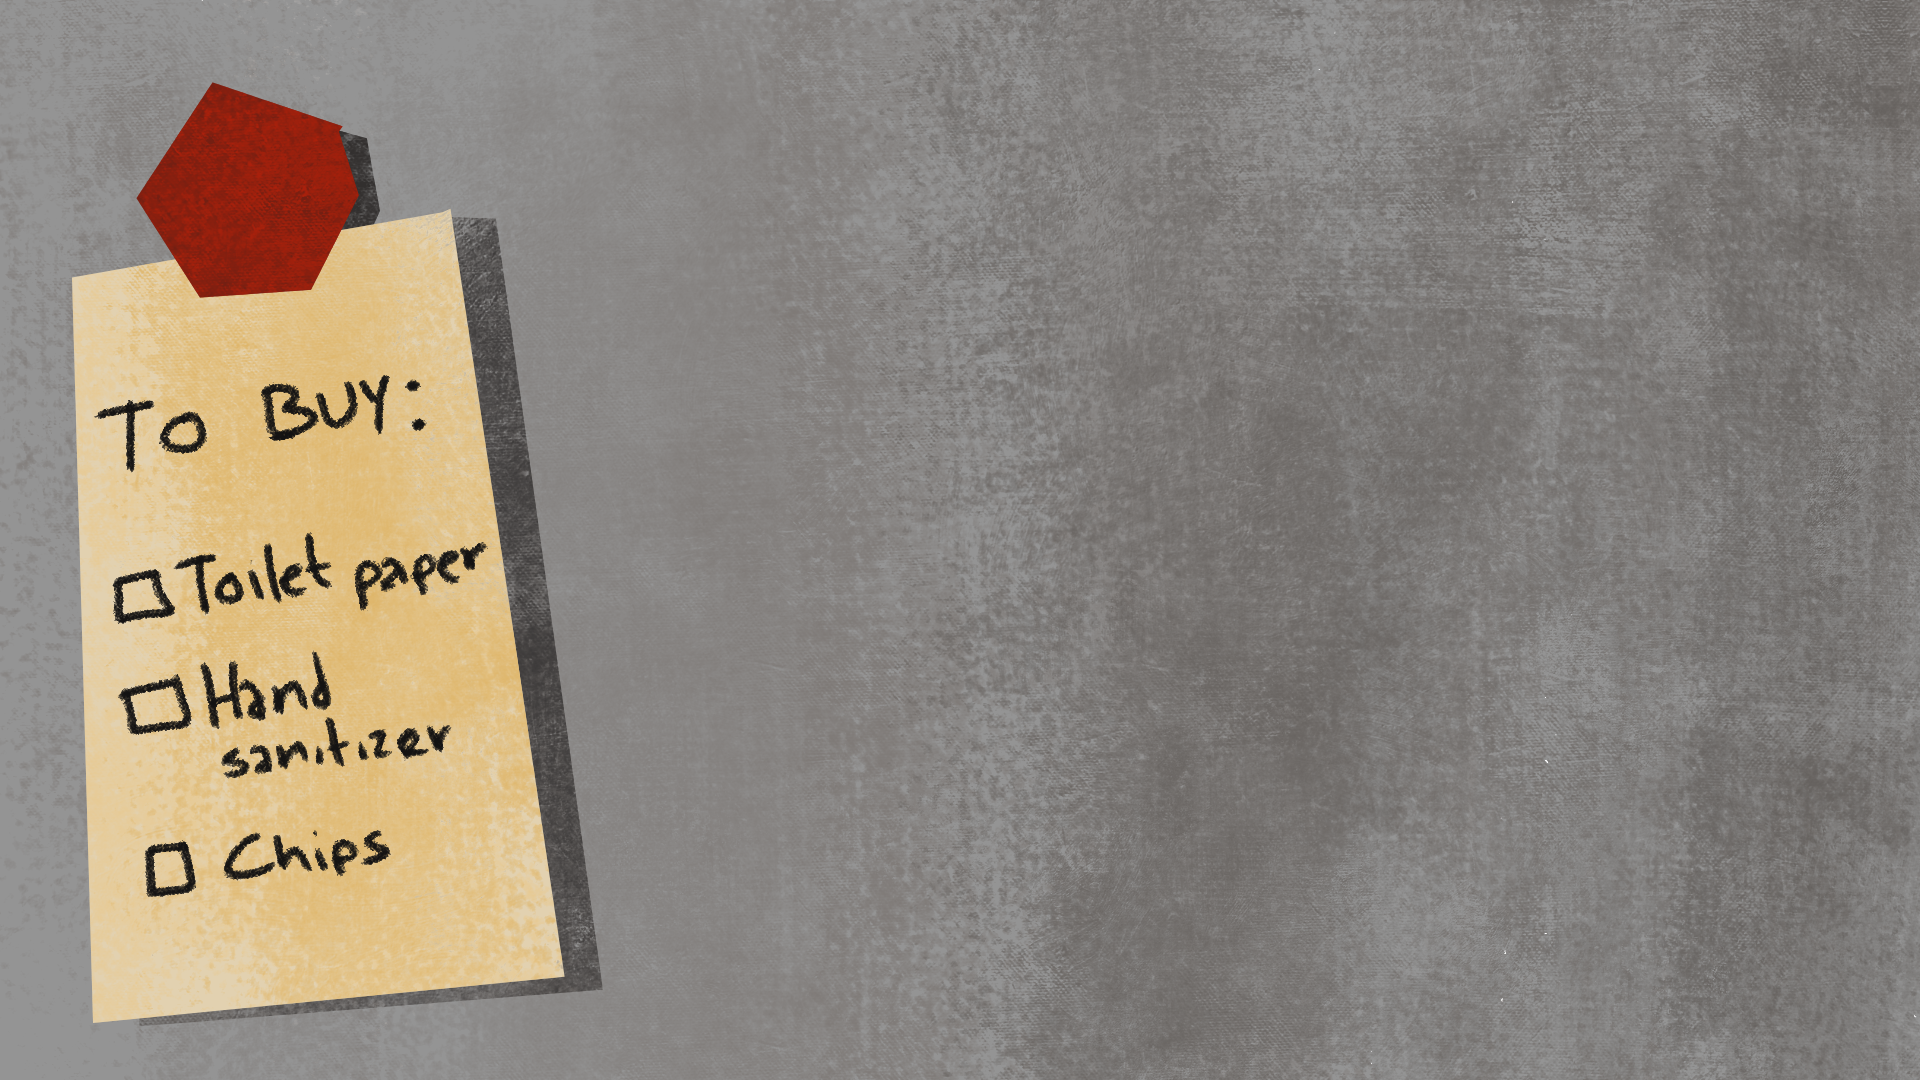 To Buy:
Toilet paper
Hand
sanitizer
Chips